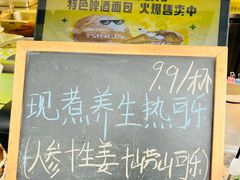 特色啤酒面包 火爆售卖中
TSINGTAO
9.9/杯
现煮养生热可乐
(人参+生姜+崂山可乐)